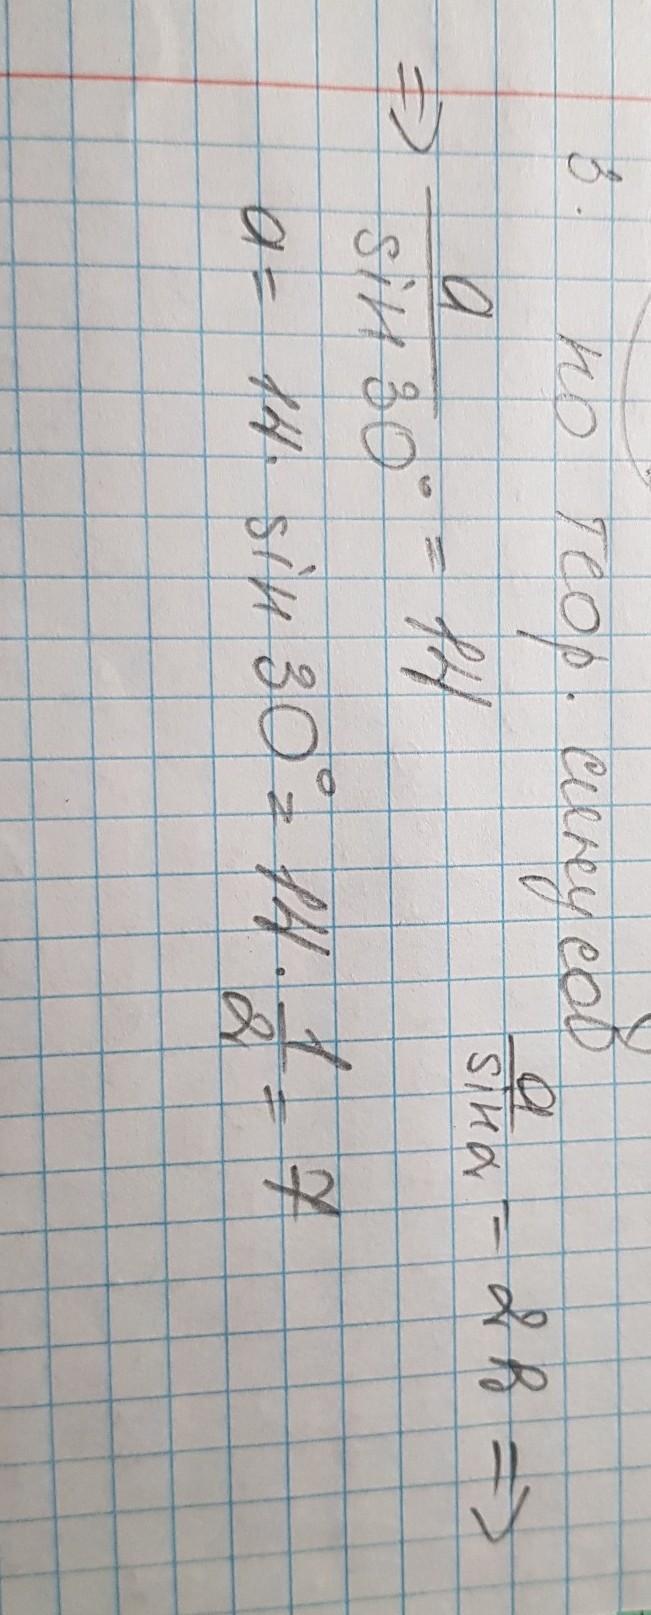 3. по теор. синусов
a/sin α = 2R ⇒
⇒ a/sin 30° = 14
a = 14 · sin 30° = 14 · 1/2 = 7